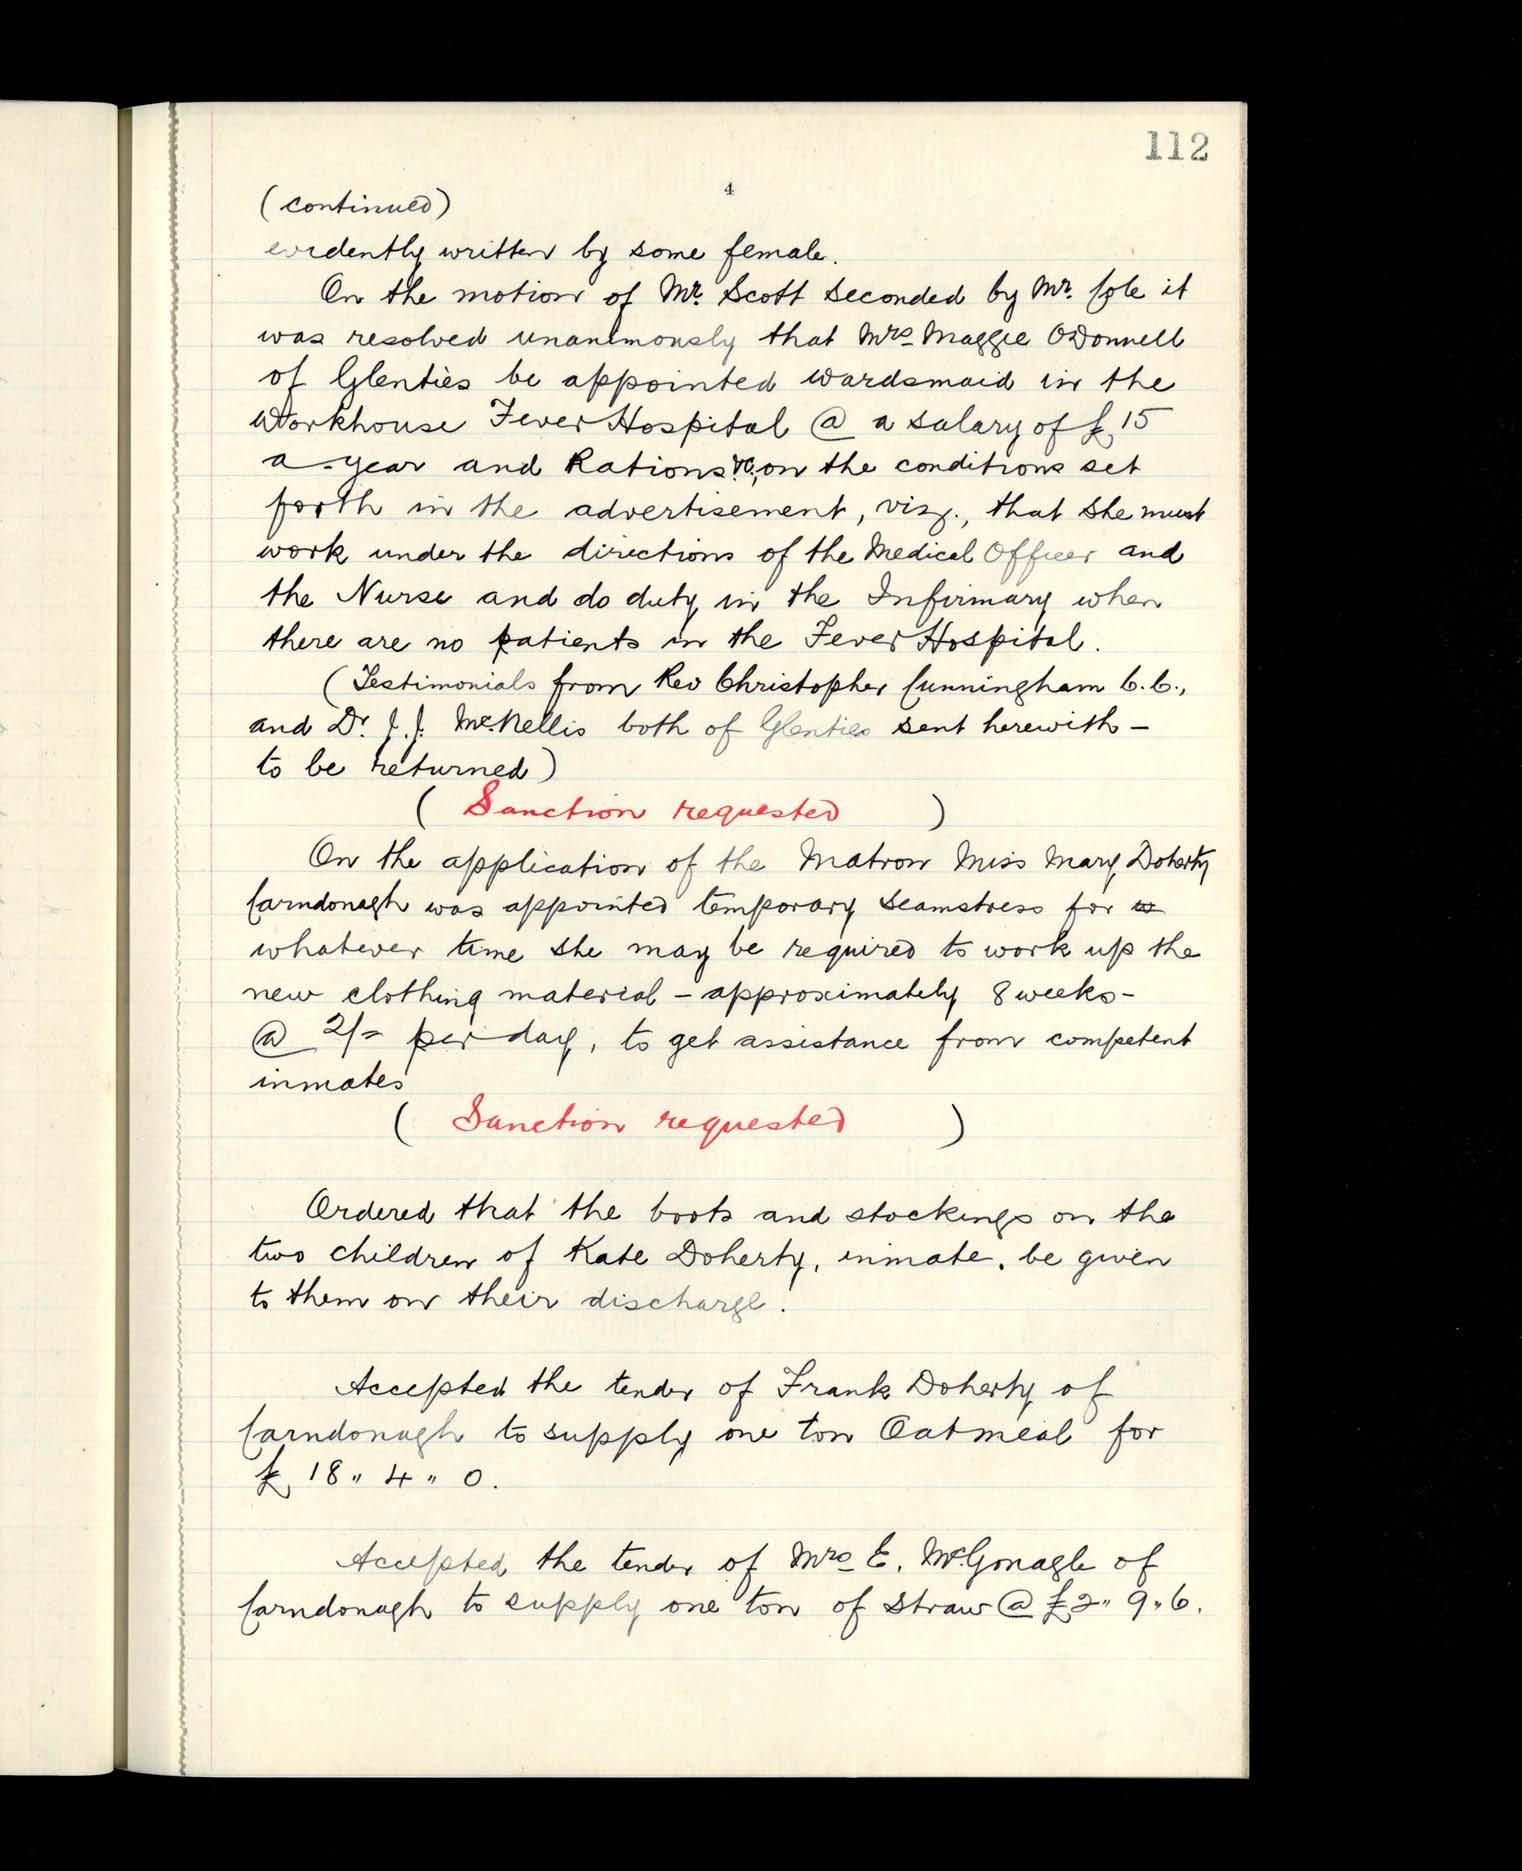 112
4
(continued)
evidently written by some female.
On the motion of Mr. Scott seconded by Mr. Cole it
was resolved unanimously that Mrs Maggie ODonnell
of Glenties be appointed wardsmaid in the
Workhouse Fever Hospital @ a salary of £15
a year and Rations &c, on the conditions set
forth in the advertisement, viz., that she must
work under the directions of the Medical Officer and
the Nurse and do duty in the Infirmary when
there are no patients in the Fever Hospital.
(Testimonials from Rev Christopher Cunningham C.C.,
and Dr J.J. McNellis both of Glenties sent herewith -
to be returned)
( Sanction requested )
On the application of the Matron Miss Mary Doherty
Carndonagh was appointed temporary seamstress for
whatever time she may be required to work up the
new clothing material - approximately 8 weeks -
@ 2/= per day, to get assistance from competent
inmates
( Sanction requested )
Ordered that the boots and stockings on the
two children of Kate Doherty, inmate, be given
to them on their discharge.
Accepted the tender of Frank Doherty of
Carndonagh to supply one ton Oatmeal for
£18 " 4 " 0.
Accepted the tender of Mrs E. McGonagle of
Carndonagh to supply one ton of Straw @ £2 " 9 " 6.